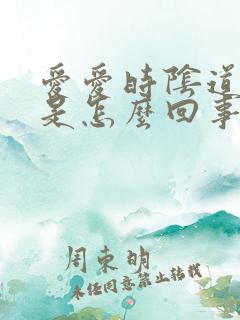 愛愛時陰道
是怎麼回事
周東明
未經同意禁止轉載